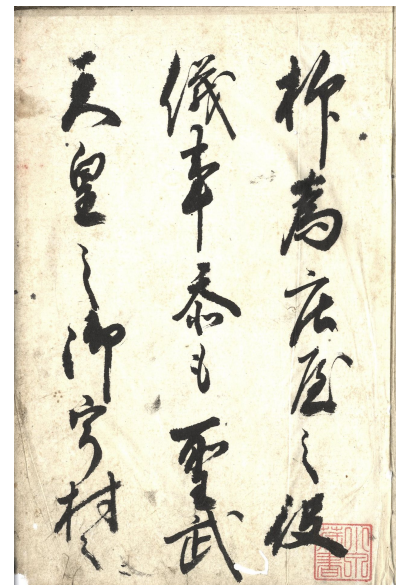 抑為庄屋之役
儀事忝も聖武
天皇之御宇村々